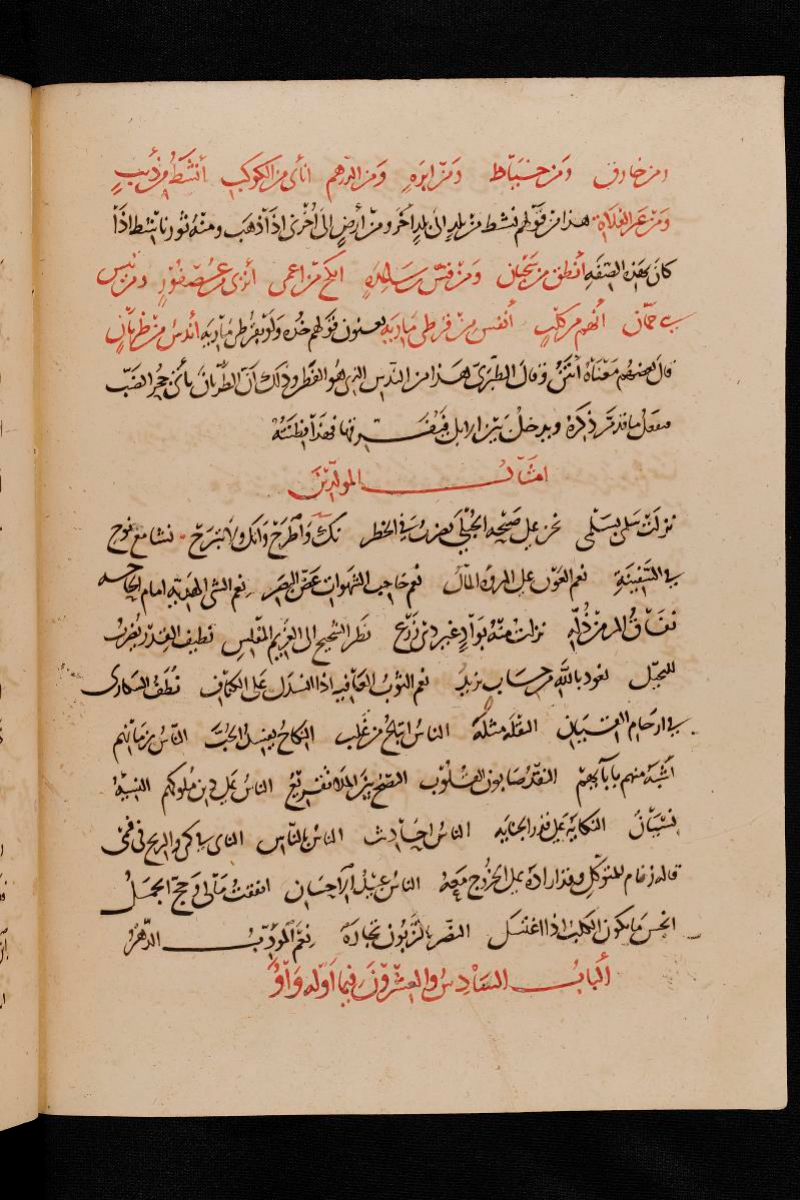 ومن خارق ومن خياط ومن ابره ومن الدرهم انأى من الكوكب أنشط من ذئب
ومن عير الفلاة هذا من قولهم نشط من بلد الى بلد آخر ومن أرض الى أخرى اذا ذهب ومنه ثور ناشط اذا
كان بهذه الصفه أنطق من سحبان ومن قس بن ساعده انكح من اعمى أنزى من عصفور ومن تيس
بني حمان أنهم من كلب أنفس من قرطي مارية يعنون قولهم خذه ولو بقرطي مارية أندس من ظربان
قال بعضهم معناه أنتن وقال الطبري هذا من الندس الذي هو الفطر وذلك أن الظربان يأتي جحر الضب
فيفعل ما قد مر ذكره ويدخل بين الابل فيفسو فيها فهذا فطنته
امثال المولدين
نزلت سلمى بسلمى نحن على صيحة الحبلى نك واطرح وانك ولا تبرح نشا مع نوح
في السفينة نعم العون على المروة المال نعم حاجب الشهوات غض البصر نعم الشي الهدية امام الحاجه
نفاق المرء من ذله نزلت منه بواد غير ذي زرع نظر الشحيح الى الغريم المفلس نظيف القدر يضرب
للبخيل نعوذ بالله من حساب يزيد نعم الثوب العافيه اذا انسدل على الكفاف نطف السكارى
في ارحام القيان النقلة مثلة الناس اتباع من غلب النكاح يفسد الحب الناس بزمانهم
اشبه منهم بآبائهم النقد صابون القلوب النصح بين الملا تقريع الناس على دين ملوكهم النسية
نسيان النكاية على قدر الجناية الناس احاديث الناس بالناس الناي في كمي والريح في فمي
قاله زنام للمتوكل وقد اراده على الخروج معه الناس عبيد الاحسان انفقت مالي وحج الجمل
انجس ما يكون الكلب اذا اغتسل النصر بالزبون تجارة نعم المؤدب الدهر
ألباب السادس والعشرون فيما اوله واو